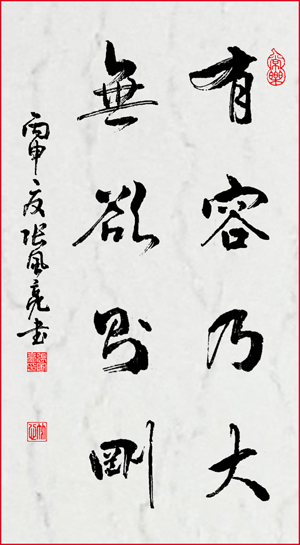 有容乃大
無欲則剛
丙申夏張風亮書